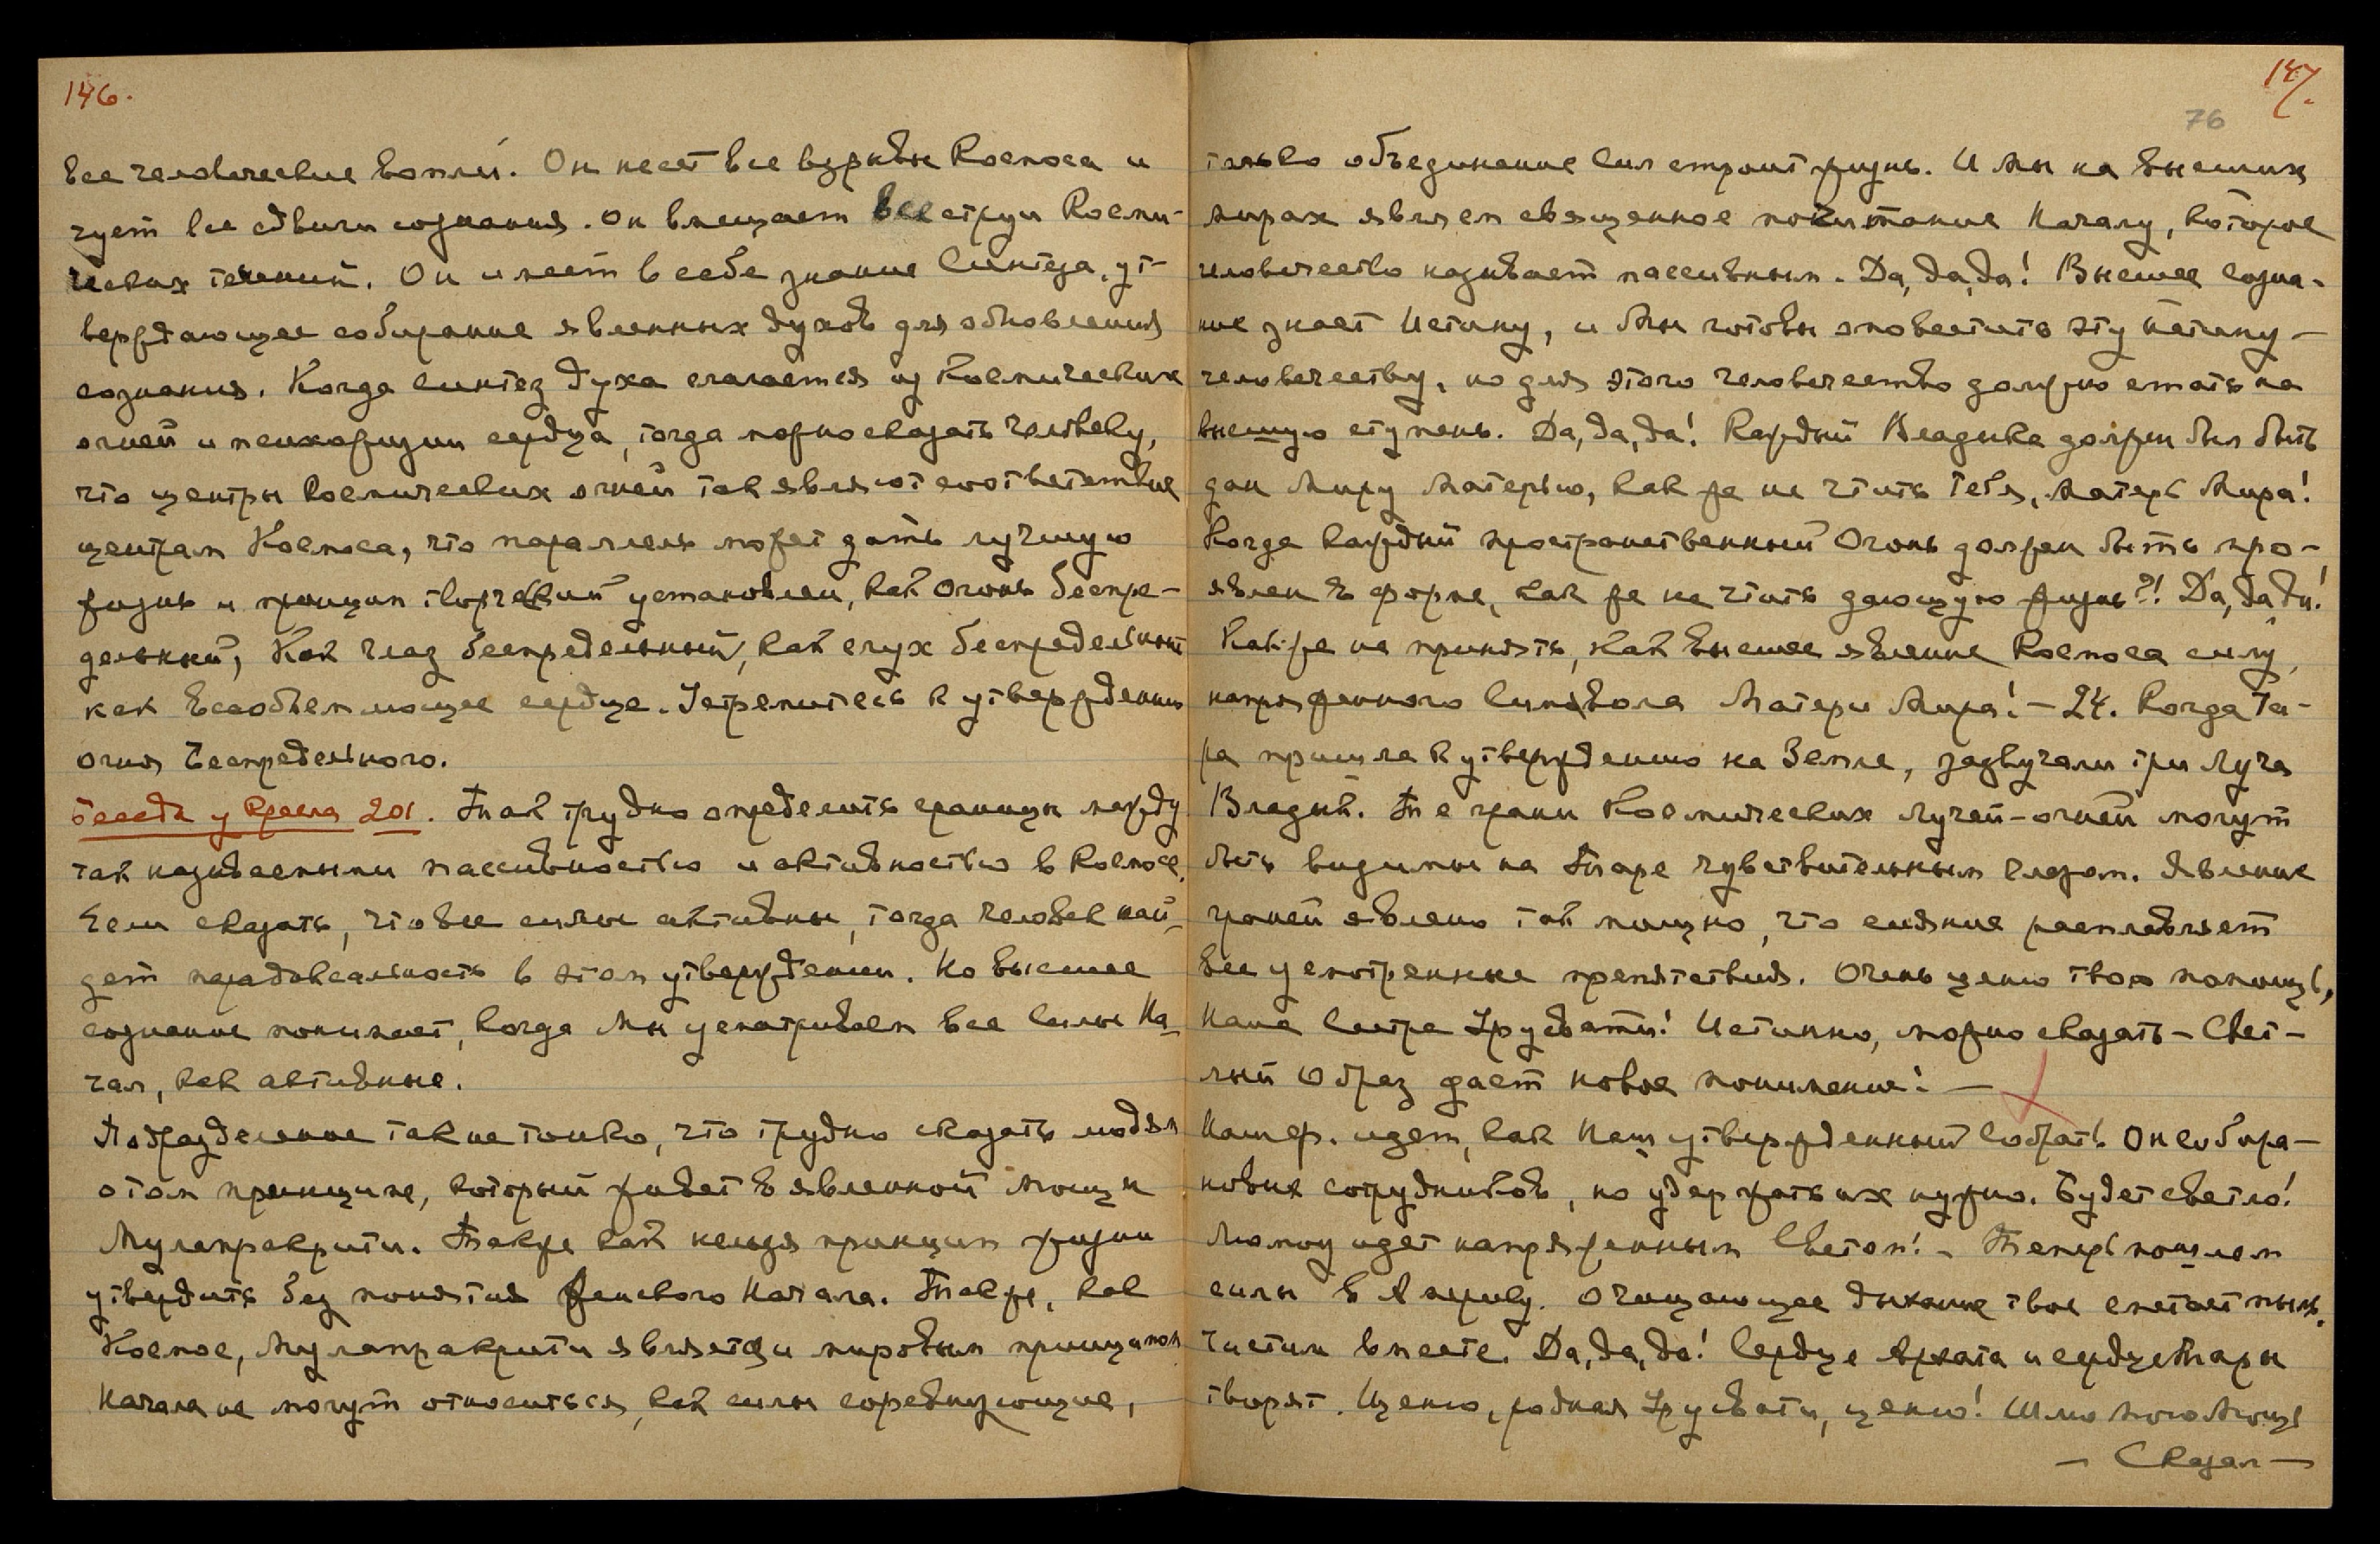 146.
все человеческие вопли. Он несет все взрывы Космоса и
чует все сдвиги сознания. Он вмещает все струи Косми-
ческих течений. Он имеет в себе знание Синтеза, ут-
верждающее собирание явленных духов для обновления
сознания. Когда синтез духа слагается из Космических
огней и психожизни сердца, тогда можно сказать человеку,
что центры Космических огней так являют соответствие
центрам Космоса, что параллель может дать лучшую
жизнь и принцип творческий установлен, как Огонь беспре-
дельный, как глаз беспредельный, как слух беспредельный
как всеобъемлющее сердце. Устремитесь к утверждению
огня Беспредельного.
Беседа у Кресла 201. Так трудно определить границы между
так называемыми пассивностью и активностью в Космосе.
Если сказать, что все силы активны, тогда человек най-
дет парадоксальность в этом утверждении. Но высшее
сознание понимает, когда Мы усматриваем все силы На-
чал, как активные.
Подразделение так не тонко, что трудно сказать людям
о том принципе, который живет в явленной мощи
Мулапракрити. Также как нельзя принцип жизни
утвердить без понятия Женского Начала. Также, как
Космос, Мулапракрити является и мировым принципом
Начала не могут относиться, как силы соревнующие,
147.
76
только объединение сил строит жизнь. И Мы на высших
мирах являем священное почитание Началу, которое
человечество называет пассивным. Да, да, да! Высшее созна-
ние знает Истину, и Мы готовы оповестить эту истину —
человечеству, но для этого человечество должно стать на
высшую ступень. Да, да, да! Каждый Владыка должен был быть
дан Миру Матерью, как же не чтить Тебя, Матерь Мира!
Когда каждый пространственный Огонь должен быть про-
явлен в форме, как же не чтить дающую жизнь?! Да, да, да!
Как же не принять, как высшее явление Космоса силу,
напряженного Символа Матери Мира! — 24. Когда Та-
ра пришла к утверждению на Земле, зазвучали три Луча
Владык. Те грани Космических Лучей-огней могут
быть видимы на Таре чувствительным глазом. Явление
граней явлено так мощно, что сияние расплавляет
все усмотренные препятствия. Очень ценю твою помощь,
Наша Сестра Урусвати! Истинно, можно сказать — Свет-
лый Образ дает новое понимание! —
Нашер. идет, как Наш утвержденный собрат. Он собира-
новых сотрудников, но удержать их нужно. Будет светло!
Люмоу идет напряженным Светом! — Теперь пошлем
силы в Америку. Очищающее дыхание твое сметает пыль.
Чистим вместе. Да, да, да! Сердце Архата и сердце Тары
творят. Ценю, родная Урусвати, ценю! Шлю мою Мощь
— Сказал —